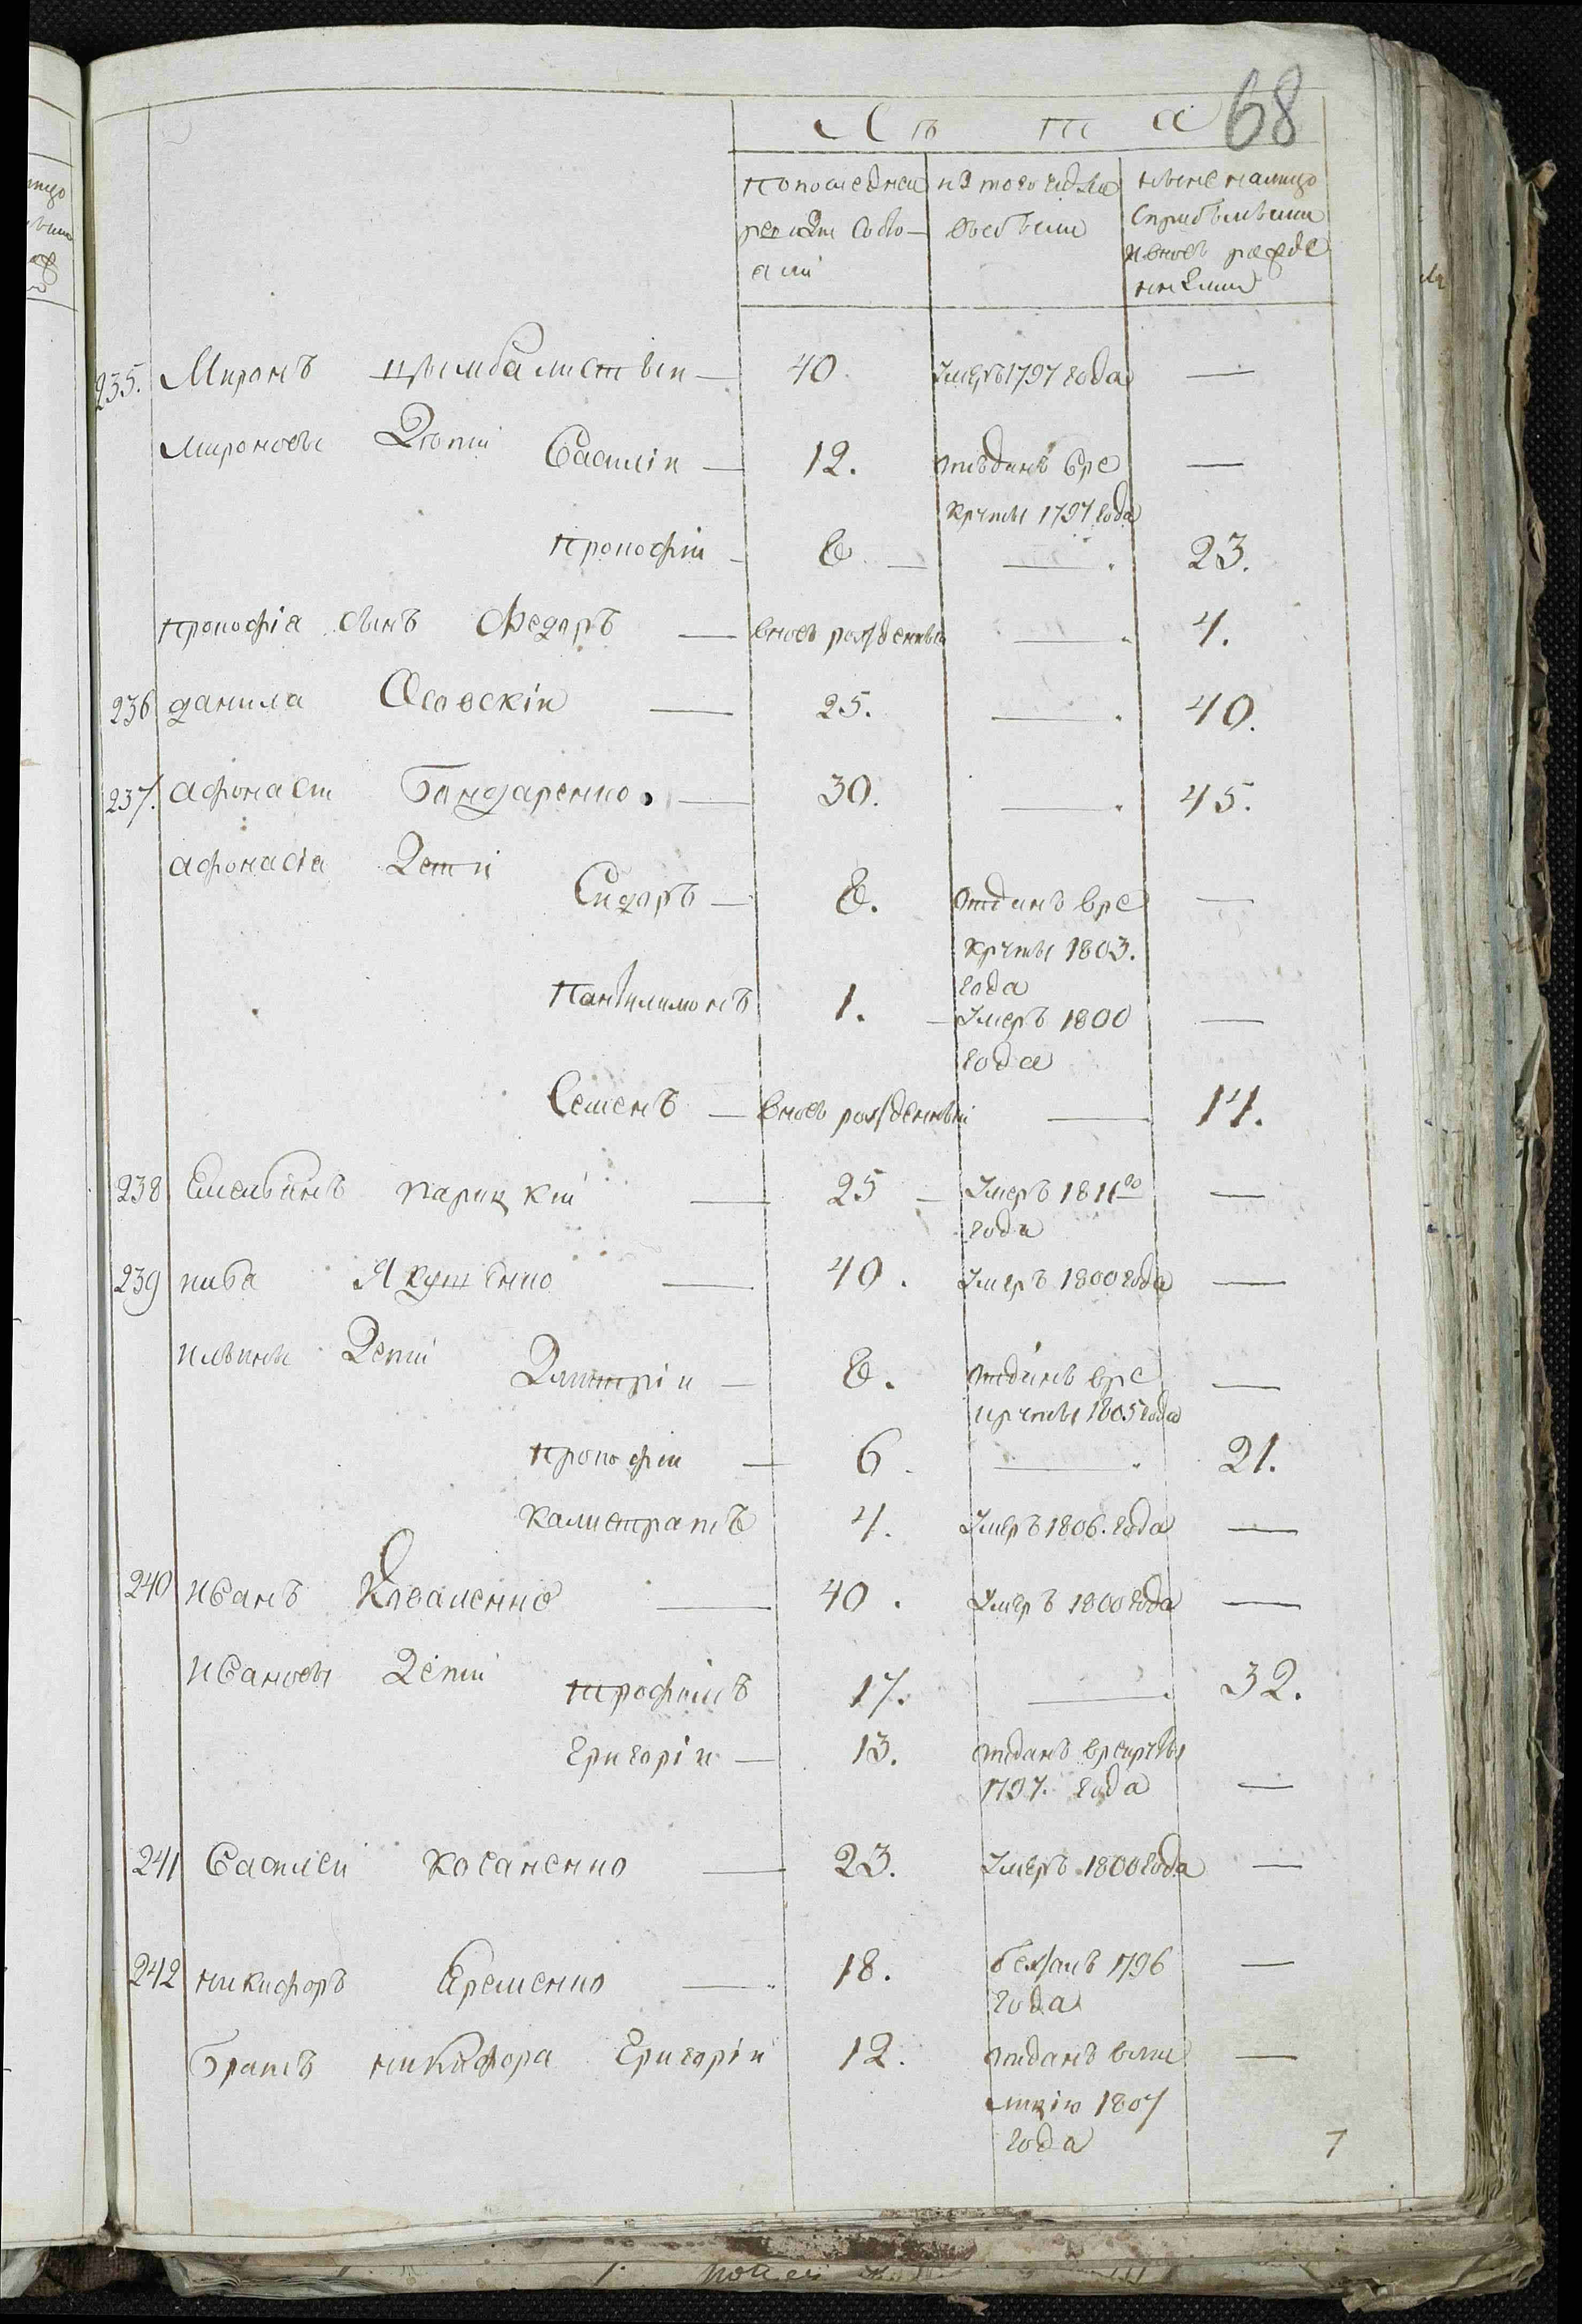 68
Лѣта
По последней
ревизіи состо-
яли
из того числа
выбыли
ныне налицо
с прибылыми
и вновь рожде
ннымы
235. Миронъ Цымбалистый — 40 умеръ 1797 года —
Мироновы дѣти Василій — 12. отъданъ вре
круты 1797 года —
Прокофій — 8. — 23.
Прокофія сынъ Федоръ — вновь рожденный — 4.
236 Данила Осовскій — 25. — 40.
237. Афонасій Бондаренко — 30. — 45.
Афонасія дети
Сидоръ — 8. отданъ вре
круты 1803.
года —
Пантилимонъ 1. — умеръ 1800
года —
Семенъ — вновь рожденный — 14.
238 Емельянъ Парицкій — 25 — умеръ 1811го
года —
239 Илья Якутенко — 40. умеръ 1800 года —
Ильины дети
Дмитрій — 8. отданъ вре
круты 1805 года —
Прокофій — 6. — 21.
Калистратъ 4. умеръ 1806. года —
240 Иванъ Коваленко — 40. умеръ 1800 года —
Ивановы дети Трофимъ 17. — 32.
Григорій — 13. отданъ врекруты
1797. года —
241 Василей Косаненко — 23. умеръ 1800 года —
242 Никифоръ Яременко — 18. бежалъ 1796
года —
Братъ Никифора Григорій 12. отданъ вми
лицію 1807
года —